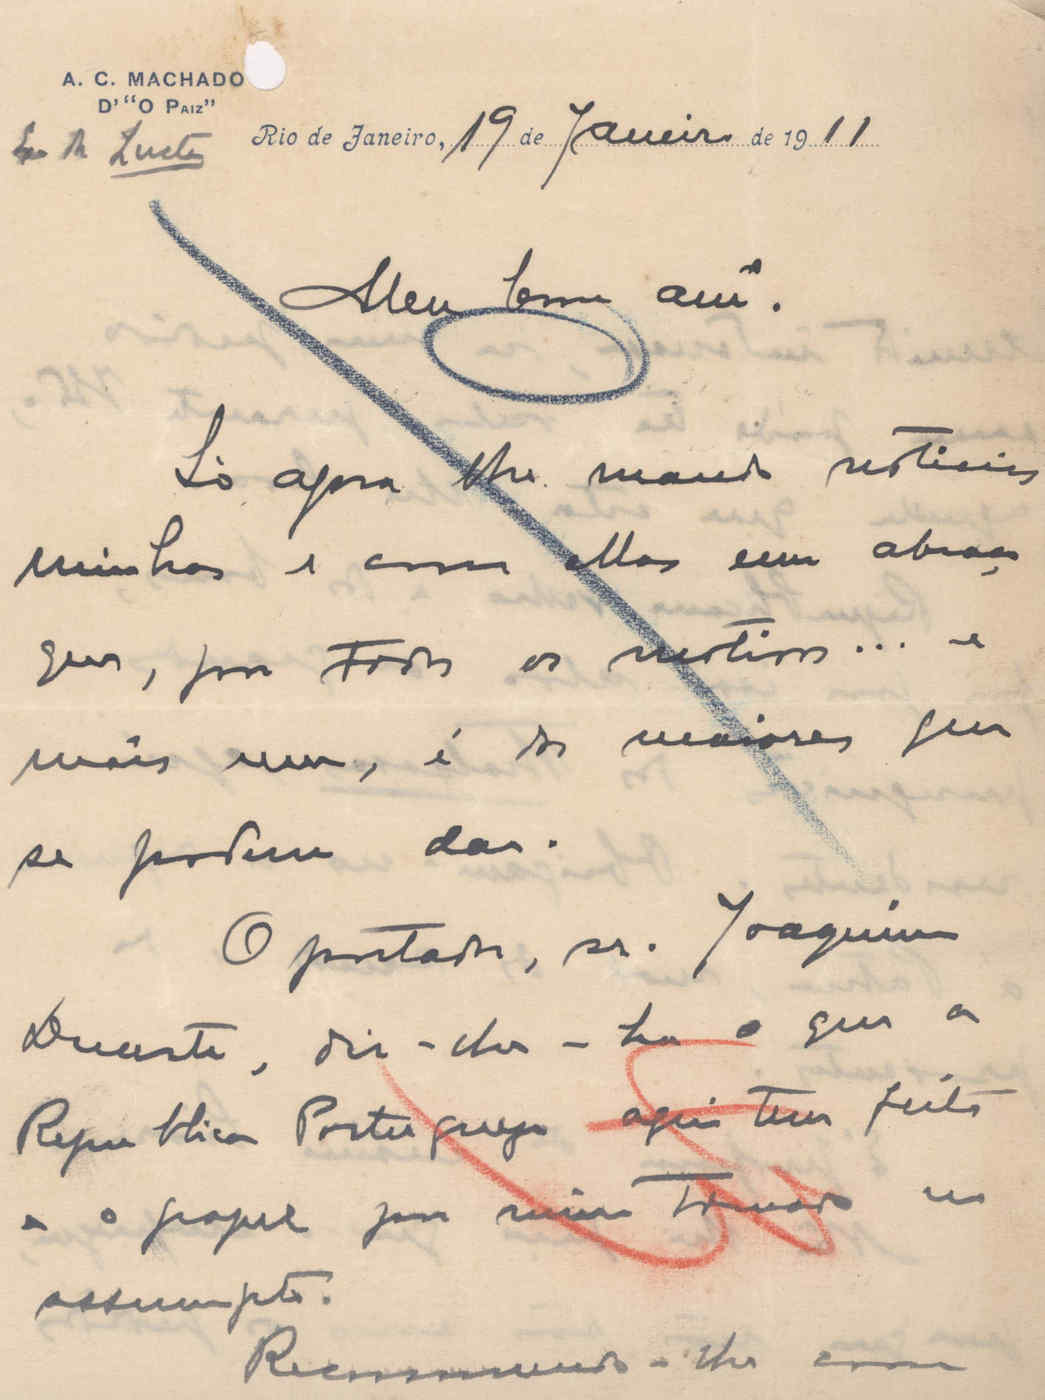 A. C. MACHADO
D' "O PAIZ"
Rio de Janeiro, 19 de Janeiro de 1911
Meu bom amº.
Só agora lhe mando noticias
minhas e com ellas um abraço
que, por todos os motivos... e
mais um, é dos maiores que
se podem dar.
O portador, sr. Joaquim
Duarte, dir-lhe-ha o que a
Republica Portugueza aqui tem feito
e o papel por mim tomado no
assumpto.
Recommendo-lhe com